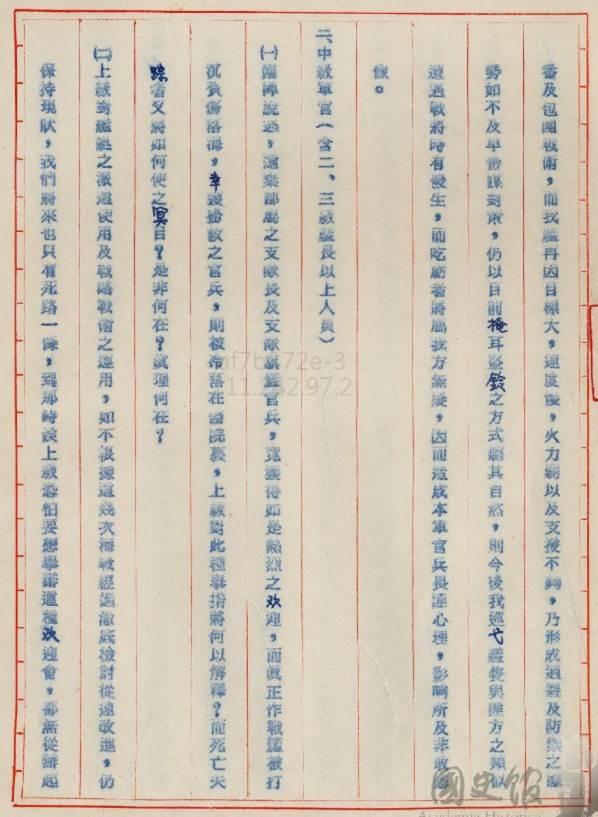 番及包圍戰術，而我艦再因目標大，速度慢，火力弱以及支援不夠，乃形成過避及防禦之
勢如不及早審謀對策，仍以目前掩耳盜鈴之方式聽其自然，則今後我巡弋艦隻與匪方之類似
遭遇戰將時有發生，而吃虧者將屬我方無疑，因而造成本軍官兵畏懼心理，影响所及非敢
像。
二、中級軍官（含二、三級艦長以上人員）
㈠臨陣脫逃，遺棄部屬之支隊長及支隊旗艦官兵，竟獲得如是熱烈之欢迎，而眞正作戰艦被打
沉負傷落海，幸獲拯救之官兵，則被冷落在醫院裏，上級對此種舉措將何以解釋？而死亡失
踪者又將如何使之冥目？是非何在？眞理何在？
㈡上級對艦艇之派遣使用及戰略戰術之運用，如不根據這幾次海戰經過澈底檢討從速改進，仍
保持現狀，我們將來也只有死路一條，到那時候上級恐怕要想舉辦這種欢迎會，都無從辦起
國史館
Academia Historica